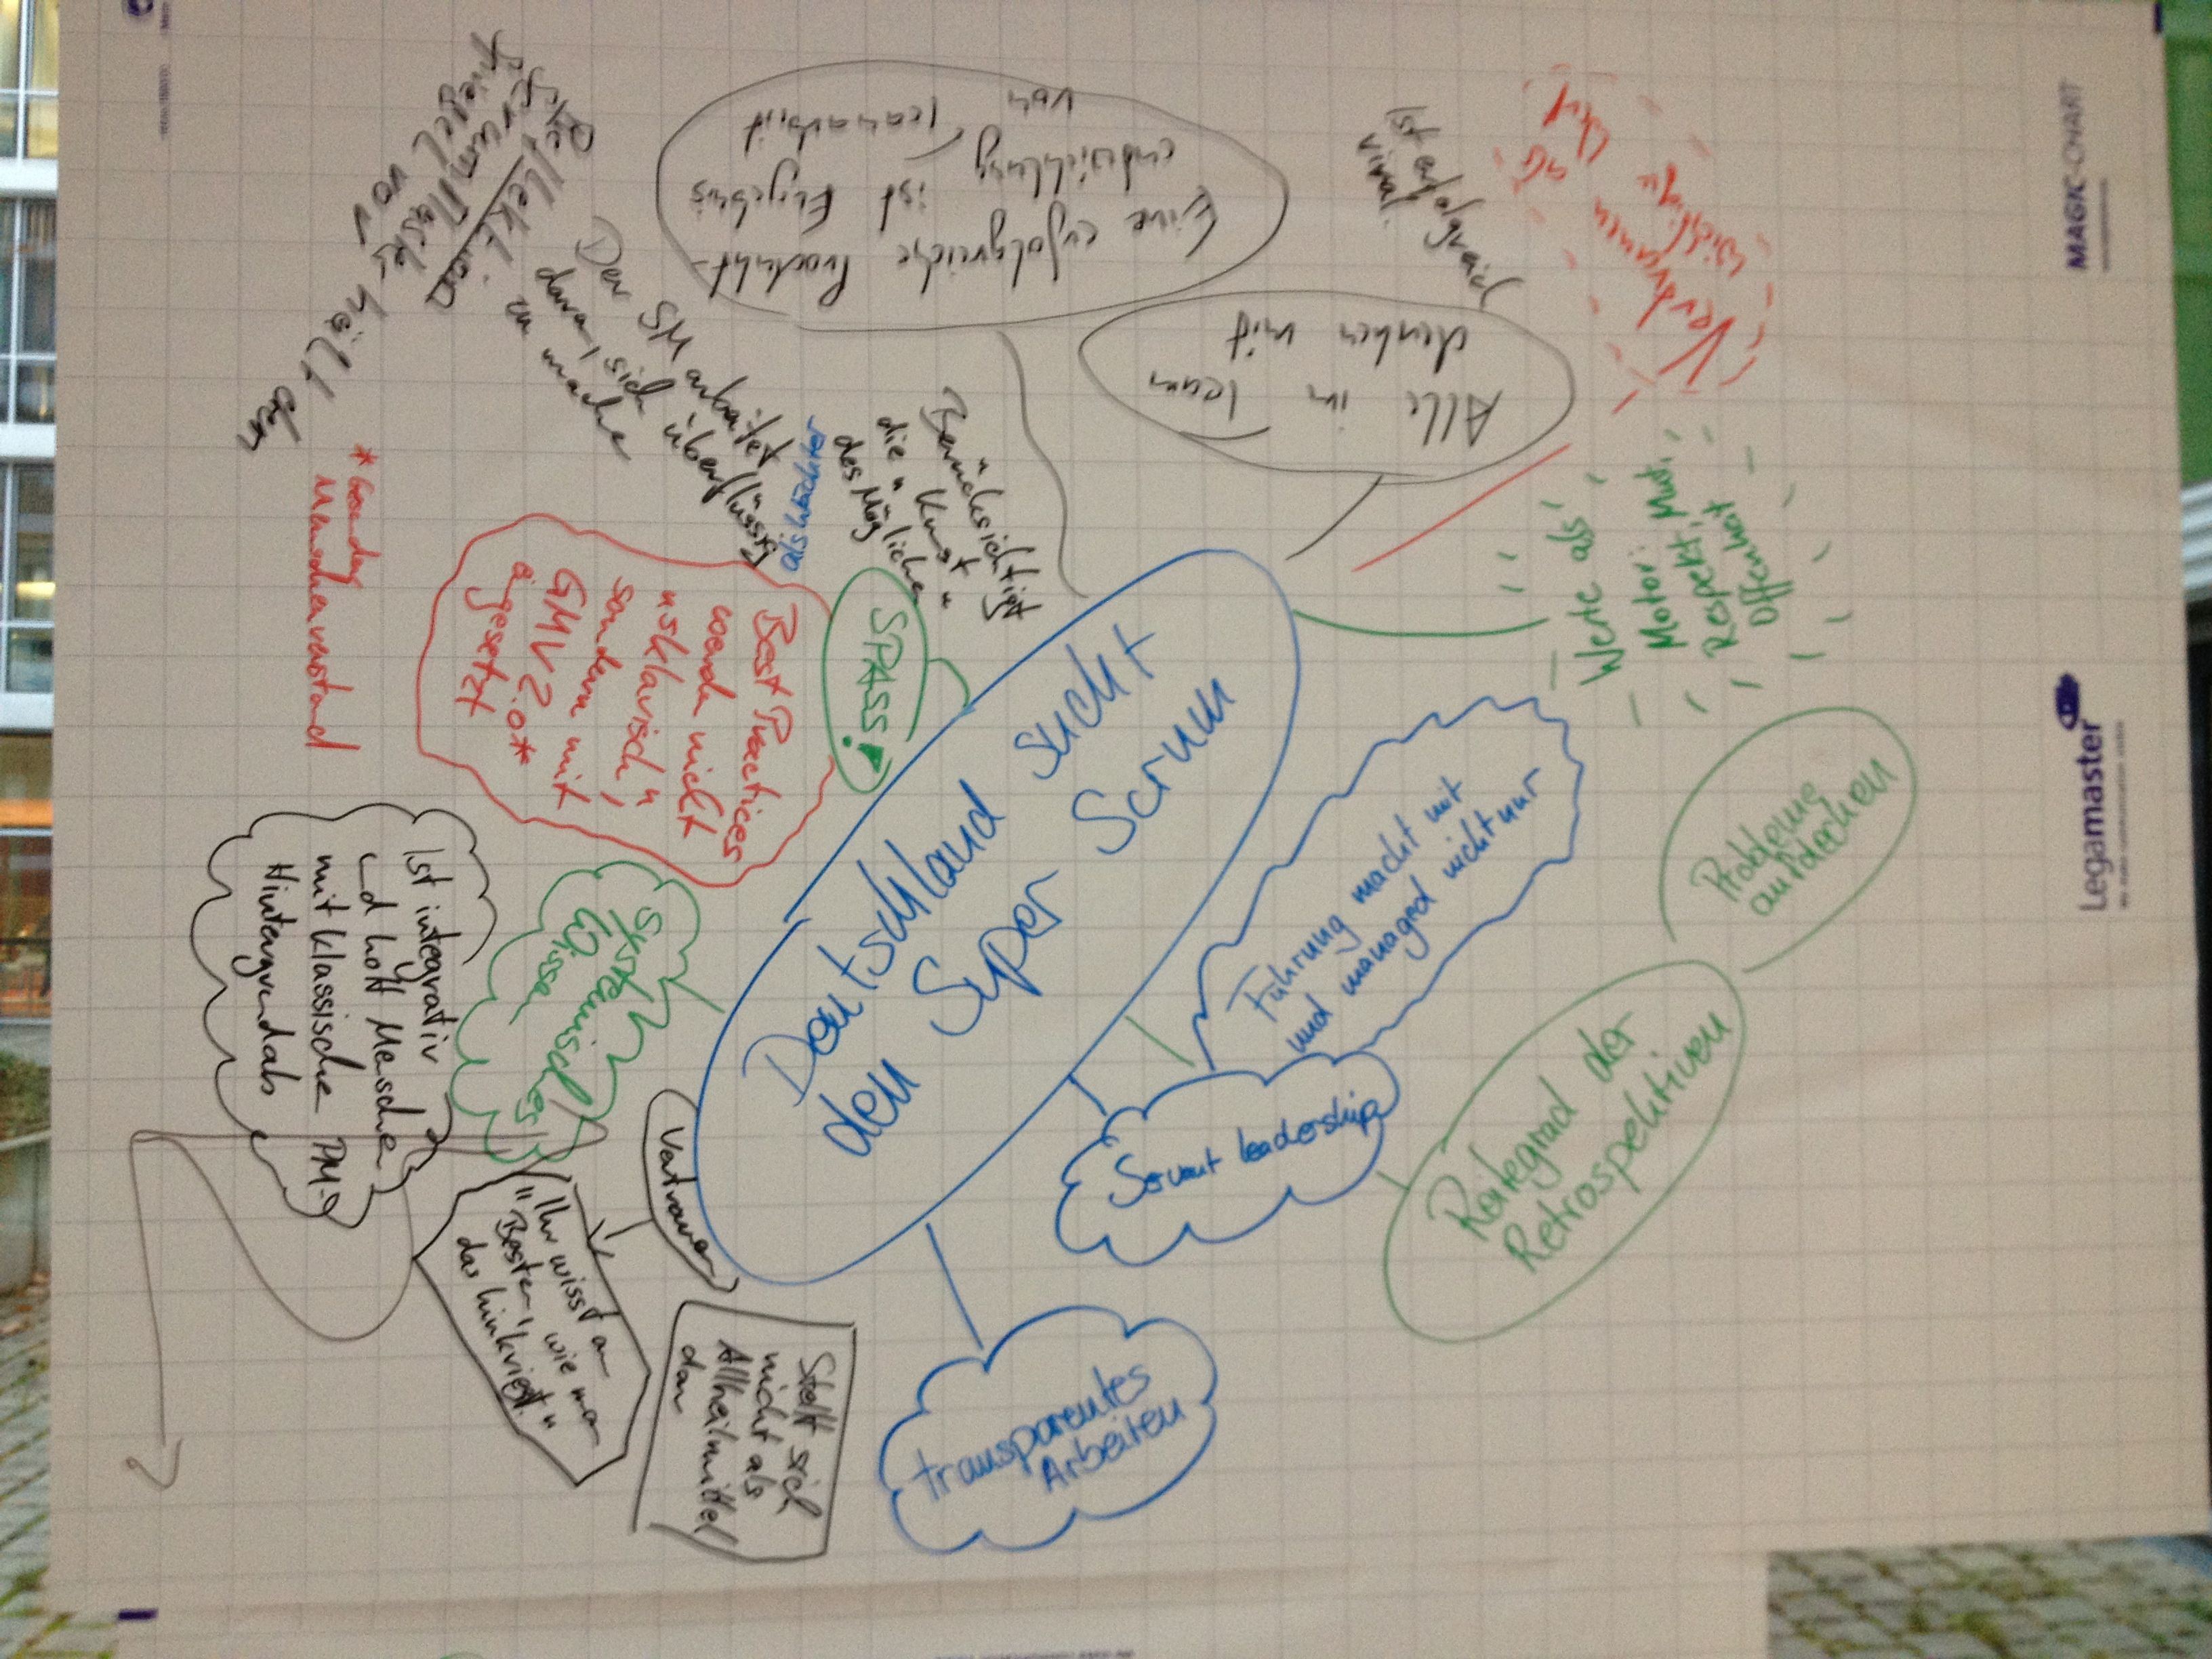 Deutschland sucht
den Super Scrum
Führung macht mit
und managed nicht nur
Servant Leadership
transparentes
Arbeiten
Reifegrad der
Retrospektiven
Probleme
aufdecken
Werte als
Motor: Mut,
Respekt,
Offenheit
Vertrauen
wichtige
ist erfolgreich
viral.
Alle im Team
denken mit
Eine erfolgreiche Produkt-
entwicklung ist Ergebnis
von Teamarbeit
Berücksichtigt
die "Kunst
des Möglichen"
SPASS!
als Wächter
Der SM arbeitet
daran, sich überflüssig
zu mache
Reflektion
Scrum Master hält den
Spiegel vor
Best Practices
werden nicht
"sklavisch",
sondern mit
GMV 2.0*
eingesetzt
* Gesunder
Menschenverstand
Systemisches
Wissen
Ist integrativ
und holt Menschen
mit klassische PM-
Hintergrund ab
Vertrauen
"Ihr wisst am
Besten, wie man
das hinkriegt."
Stellt sich
nicht als
Allheilmittel
dar
MAGIC-CHART
Legamaster